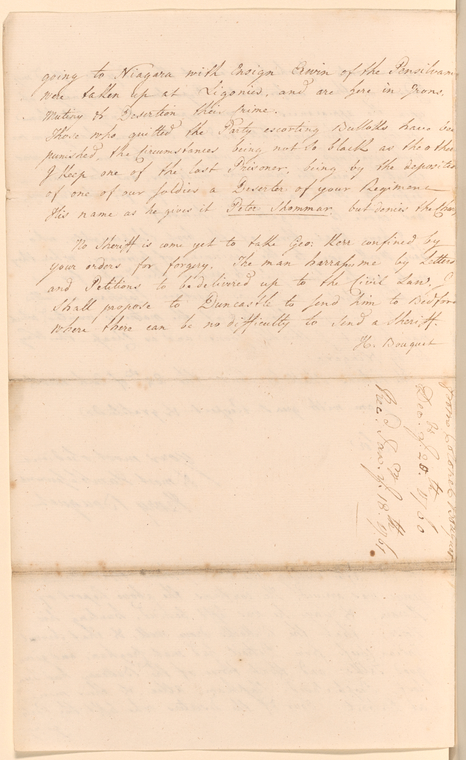 going to Niagara with Ensign Erwin of the Pensilvan
were taken up at Ligonier, and are here in Irons.
Mutiny & Desertion their crime.
Those who quitted the Party escorting Bullocks have bee
punished, the Circumstances being not so black as the other
I keep one of the last Prisoners, being by the deposition
of one of our soldiers a Deserter of your Regiment
His name as he gives it Peter Shommar, but denies the
No Sheriff is come yet to take Geo: Kore confined by
your orders for forgery. The man harrass me by Letters
and Petitions to be delivered up to the Civil Law, I
shall propose to Duncastle to send him to Bedford
where there can be no difficulty to send a Sheriff.
H. Bouquet
From Colonel Bouquet
Decr. ye 20th 1760
Recd. Janry. ye 18th 1761